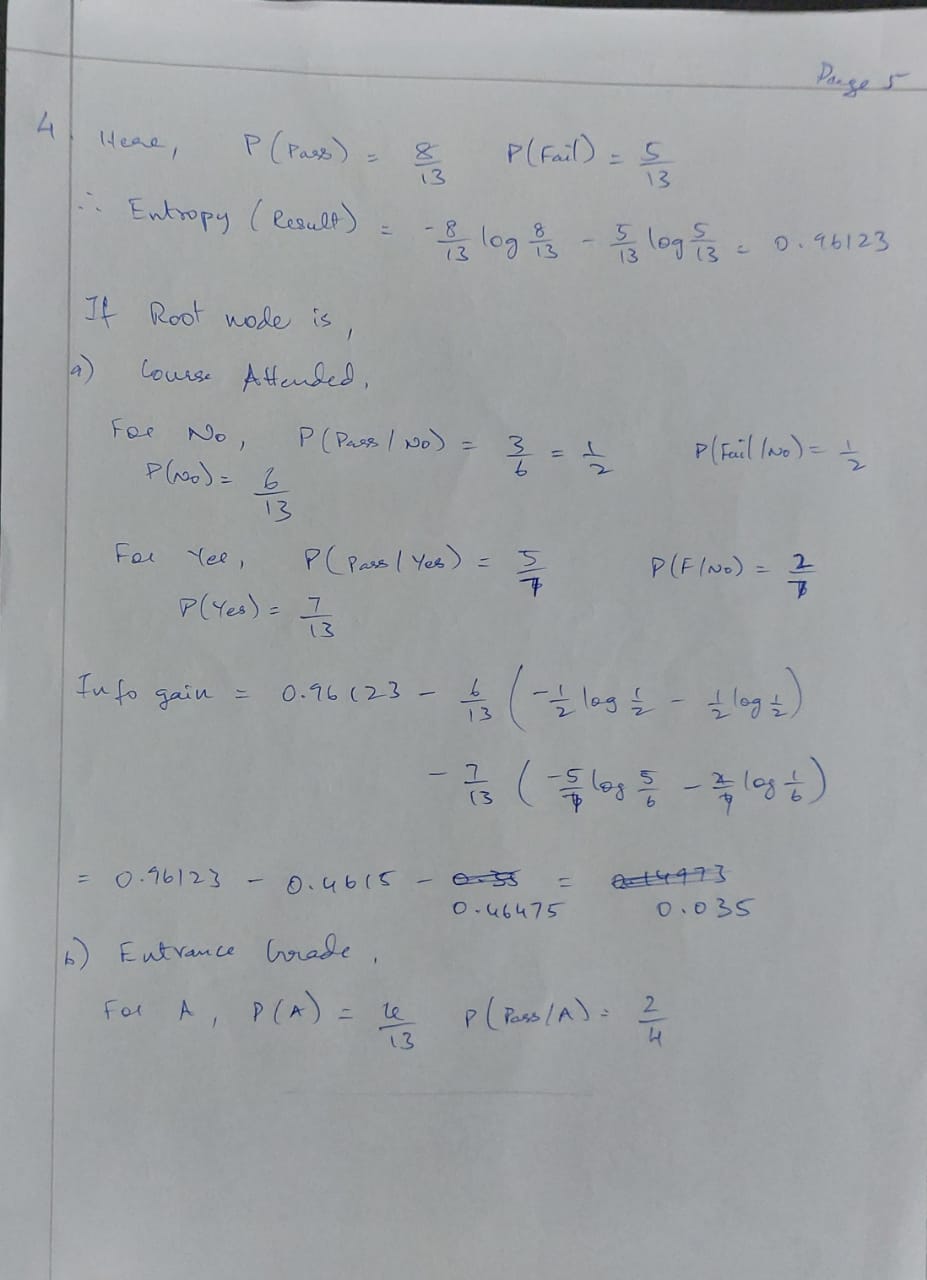 Page 5
4. Here, P(Pass) = 8/13 P(Fail) = 5/13
∴ Entropy (Result) = -8/13 log 8/13 - 5/13 log 5/13 = 0.96123
If Root node is,
a) Course Attended,
For No, P(Pass/No) = 3/6 = 1/2 P(Fail/No) = 1/2
P(No) = 6/13
For Yes, P(Pass/Yes) = 5/7 P(F/No) = 2/7
P(Yes) = 7/13
Info gain = 0.96123 - 6/13 (-1/2 log 1/2 - 1/2 log 1/2)
- 7/13 (-5/7 log 5/6 - 2/7 log 1/6)
= 0.96123 - 0.4615 - 0.35 = 0.14973
0.46475 0.035
b) Entrance Grade,
For A, P(A) = 4/13 P(Pass/A) = 2/4